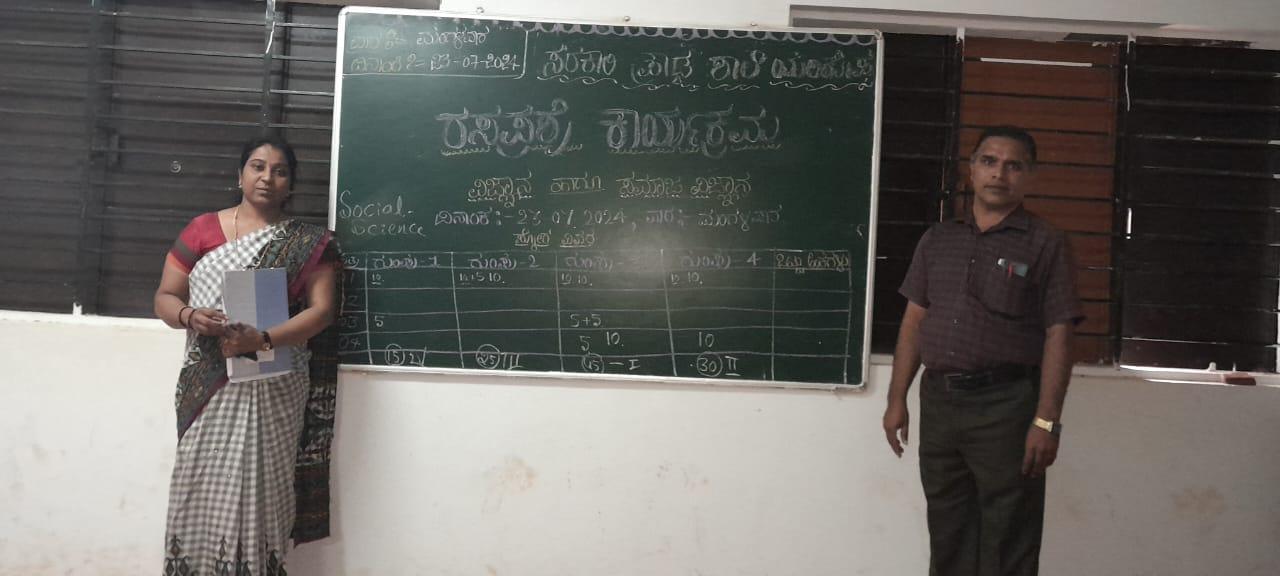 ವಾರ :- ಮಂಗಳವಾರ
ದಿನಾಂಕ :- 23-07-2024
ಸರಕಾರಿ ಪ್ರೌಢ ಶಾಲೆ
ರಸಪ್ರಶ್ನೆ ಕಾರ್ಯಕ್ರಮ
ವಿಜ್ಞಾನ ಹಾಗೂ ಸಮಾಜ ವಿಜ್ಞಾನ
Social Science
ದಿನಾಂಕ :- 23.07.2024, ವಾರ :- ಮಂಗಳವಾರ
ಸ್ಕೋರ ವಿವರ
ಗುಂಪು - 1 ಗುಂಪು - 2 ಗುಂಪು - ಗುಂಪು - 4 ಒಟ್ಟು
10 10+5 10. 10 10. 10 10.
02
03 5 5+5
04 5 10. 10
15 25 II - I 30 II